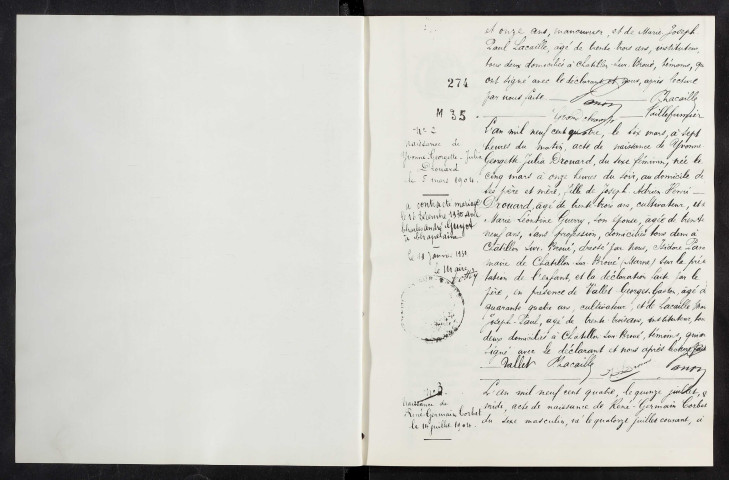 274
M 35
et onze ans, manouvrier, et de Marie Joseph
Paul Lacaille, agé de trente trois ans, instituteur,
tous deux domiciliés à Chatillon sur Broué, témoins, qui
ont signé avec le déclarant et nous, après lecture
par nous faite
PLacaille
N° 2
naissance de
Yvonne Georgette Julia
Drouard
le 5 mars 1904
a contracté mariage
le 18 janvier 1931
le Maire
L'an mil neuf cent quatre, le six mars, à sept
heures du matin, acte de naissance de Yvonne
Georgette Julia Drouard, du sexe féminin, née le
cinq mars à onze heures du soir, au domicile de
ses père et mère, fille de Joseph Adrien Henri
Drouard, agé de trente trois ans, cultivateur, et de
Marie Léontine Guerry, son épouse, agée de trente
neuf ans, sans profession, domiciliés tous deux à
Chatillon sur Broué, dressé par Nous, Isidore
maire de Chatillon sur Broué (Marne) sur la présen
tation de l'enfant, et la déclaration faite par le
père, en présence de Vallet Georges Gaston, agé de
quarante quatre ans, cultivateur, et de Lacaille Marie
Joseph Paul, agé de trente trois ans, instituteur, tous
deux domiciliés à Chatillon sur Broué, témoins, qui ont
signé avec le déclarant et nous après lecture faite
Vallet PLacaille
N° 3
naissance de
René Germain Corbet
le 14 juillet 1904
L'an mil neuf cent quatre, le quinze juillet, à
midi, acte de naissance de René Germain Corbet
du sexe masculin, né le quatorze juillet courant, à